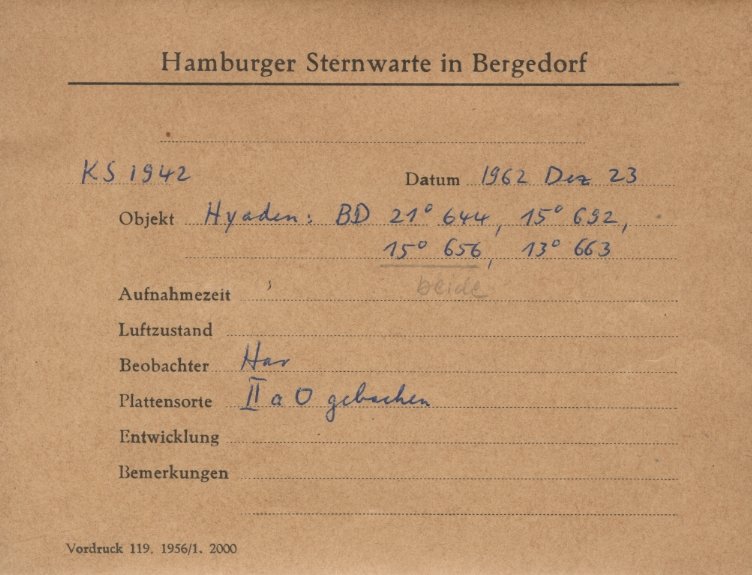 Hamburger Sternwarte in Bergedorf
KS 1942
Datum 1962 Dez 23
Objekt Hyaden: BD 21° 644, 15° 692,
15° 656, 13° 663
beide
Aufnahmezeit
Luftzustand
Beobachter Har
Plattensorte II a O gebachen
Entwicklung
Bemerkungen
Vordruck 119. 1956/1. 2000